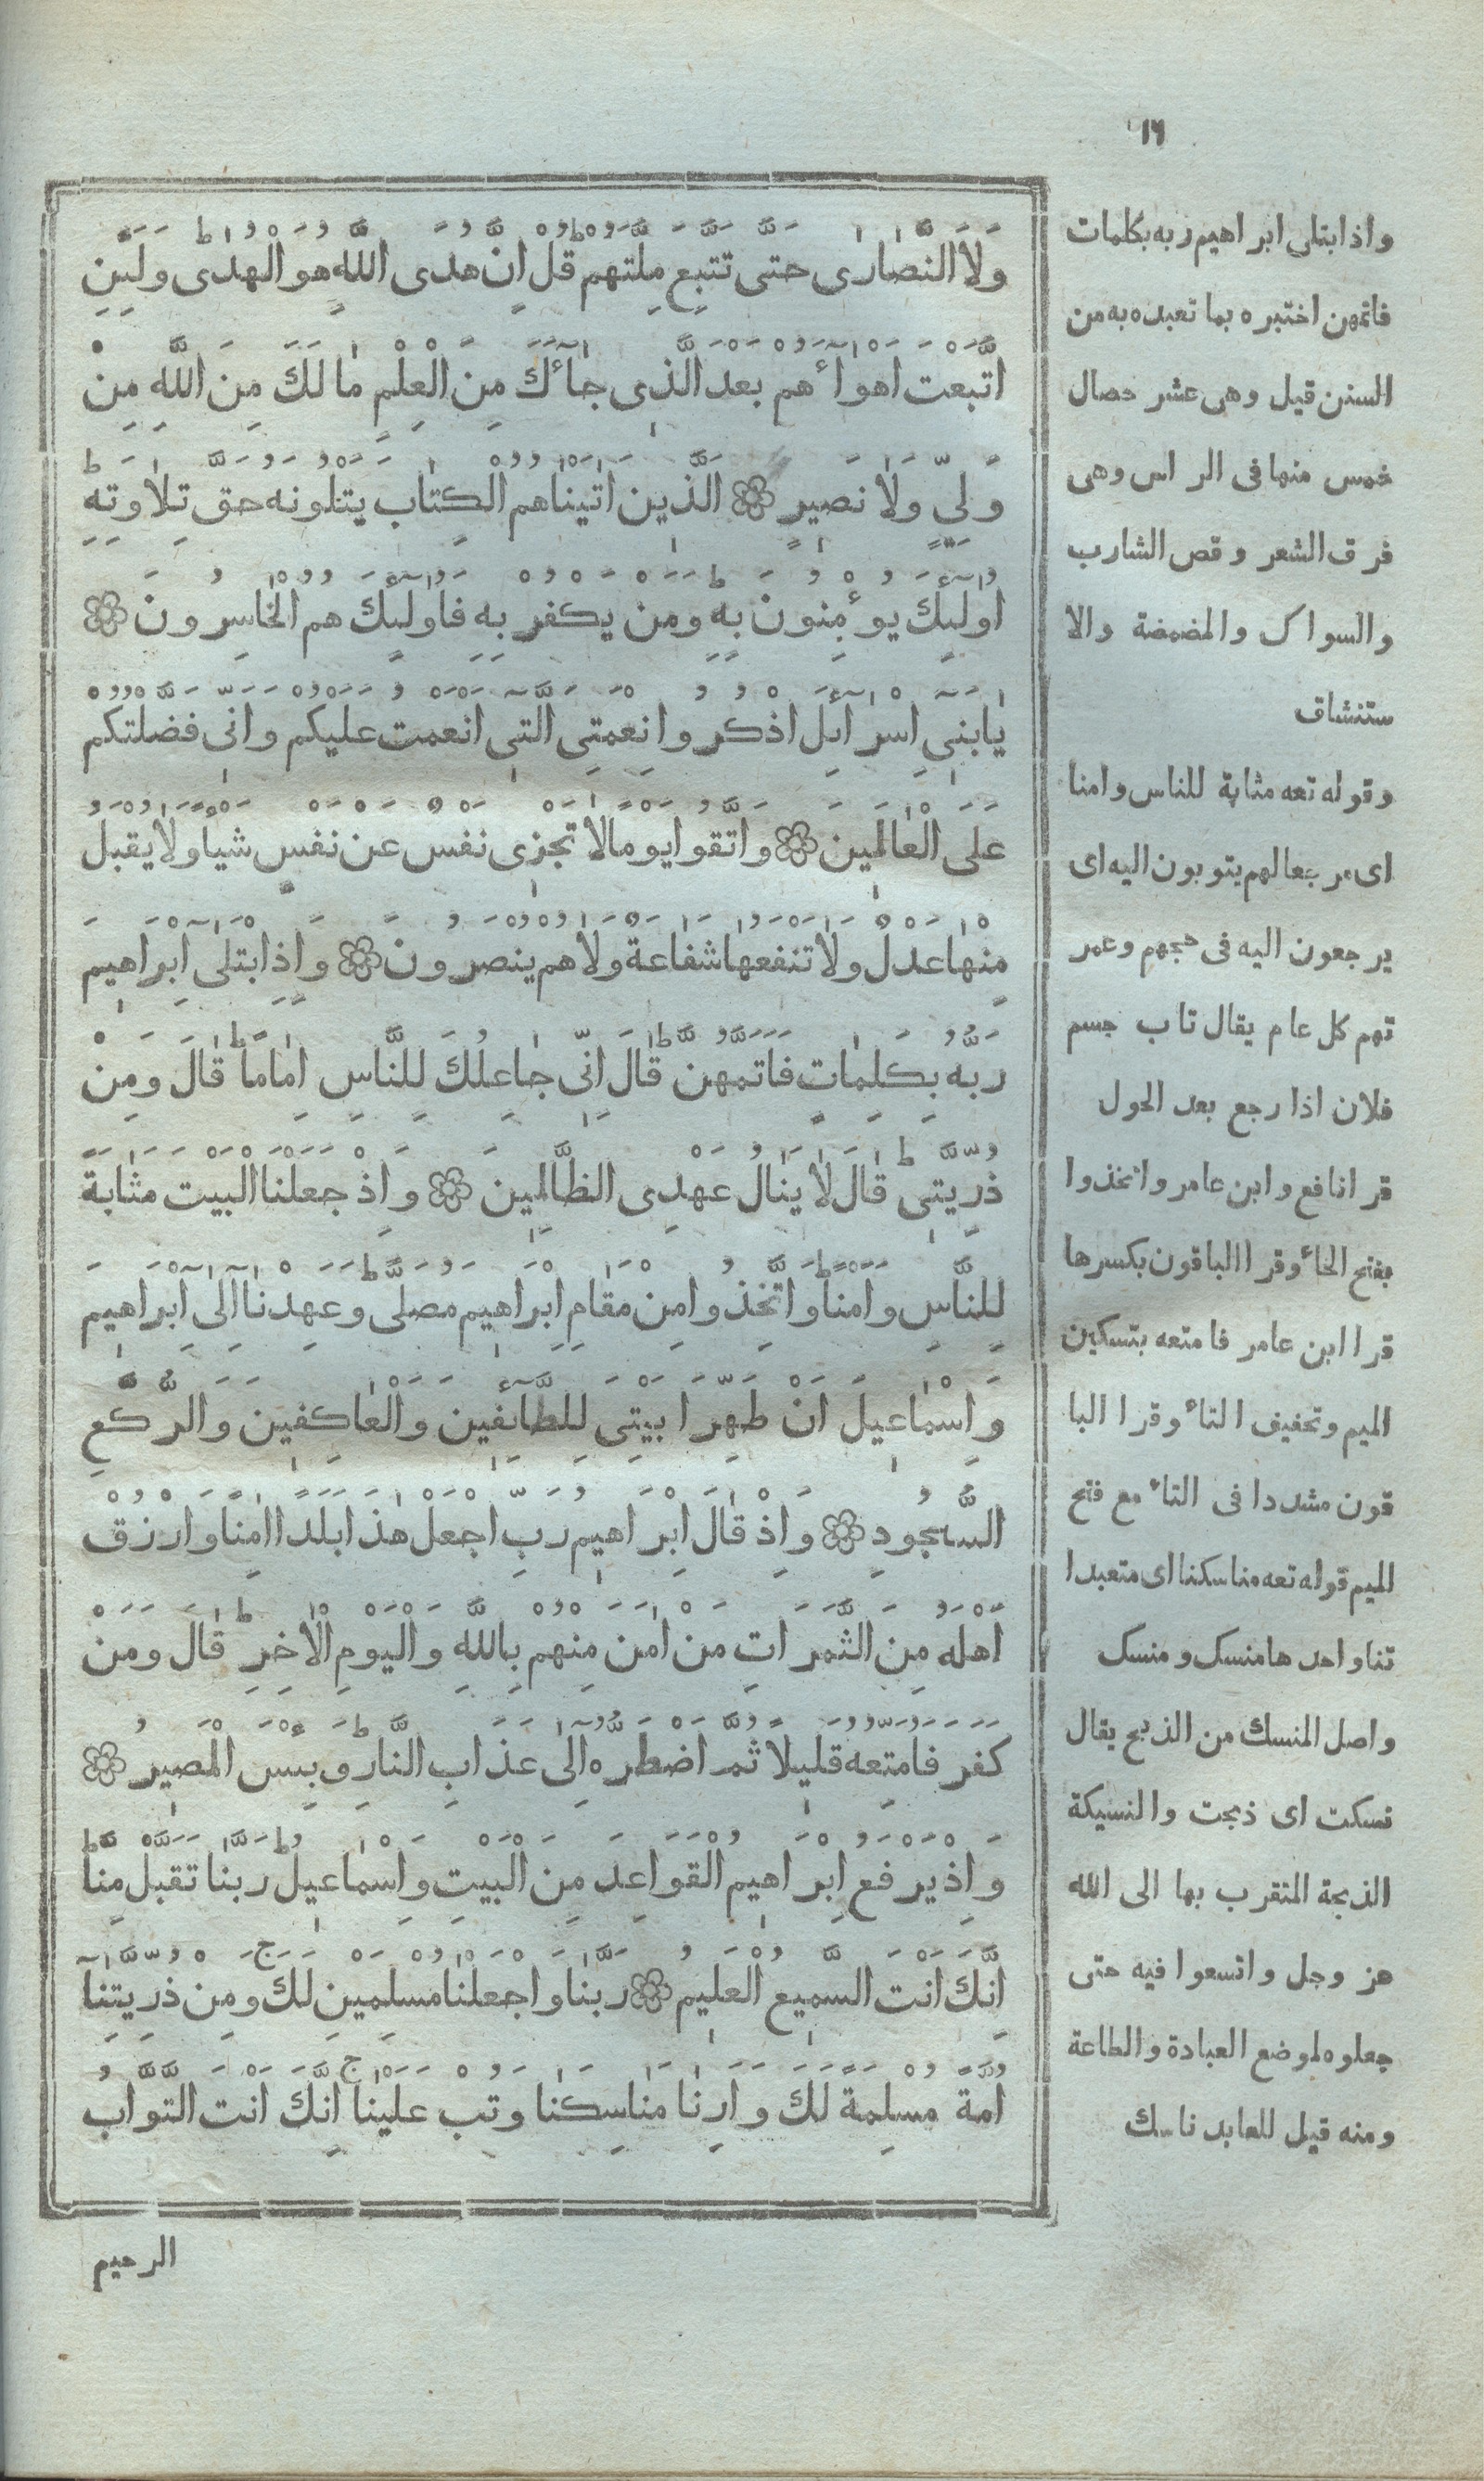 ١٦
ولا النصارى حتى تتبع ملتهم قل ان هدى الله هو الهدى ولين
اتبعت اهواءهم بعد الذى جاءك من العلم ما لك من الله من
ولى ولا نصير ۞ الذين اتيناهم الكتاب يتلونه حق تلاوته
اولىك يوءمنون به ومن يكفر به فاولىك هم الخاسرون ۞
يابنى اسراىل اذكروا نعمتى التى انعمت عليكم وانى فضلتكم
على العالمين ۞ واتقوا يوما لا تجزى نفس عن نفس شيأ ولا يقبل
منها عدل ولا تنفعها شفاعة ولا هم ينصرون ۞ واذ ابتلى ابراهيم
ربه بكلمات فاتمهن قال انى جاعلك للناس اماما قال ومن
ذريتى قال لا ينال عهدى الظالمين ۞ واذ جعلنا البيت مثابة
للناس وامنا واتخذوا من مقام ابراهيم مصلى وعهدنا الى ابراهيم
واسماعيل ان طهرا بيتى للطاىفين والعاكفين والركع
السجود ۞ واذ قال ابراهيم رب اجعل هذا بلدا امنا وارزق
اهله من الثمرات من امن منهم بالله واليوم الاخر قال ومن
كفر فامتعه قليلا ثم اضطره الى عذاب النار وبىس المصير ۞
واذ يرفع ابراهيم القواعد من البيت واسماعيل ربنا تقبل منا
انك انت السميع العليم ۞ ربنا واجعلنا مسلمين لك ومن ذريتنا
امة مسلمة لك وارنا مناسكنا وتب علينا انك انت التواب
الرحيم
واذ ابتلى ابراهيم ربه بكلمات
فاتمهن اختبره بما تعبده به من
السنن قيل وهى عشر خصال
خمس منها فى الراس وهى
فرق الشعر وقص الشارب
والسواك والمضمضة والا
ستنشاق
وقوله تعه مثابة للناس وامنا
اى مرجعا لهم يتوبون اليه اى
يرجعون اليه فى حجهم وعمر
تهم كل عام يقال تاب جسم
فلان اذا رجع بعد الحول
قرا نافع وابن عامر واتخذوا
بفتح الخاء وقرا الباقون بكسرها
قرا ابن عامر فامتعه بتسكين
الميم وتخفيف التاء وقرا البا
قون مشددا فى التاء مع فتح
الميم قوله تعه مناسكنا اى متعبدا
تنا واحدها منسك ومنسك
واصل المنسك من الذبح يقال
نسكت اى ذبحت والنسيكة
الذبحة المتقرب بها الى الله
عز وجل واتسعوا فيه حتى
جعلوه لموضع العبادة والطاعة
ومنه قيل للعابد ناسك